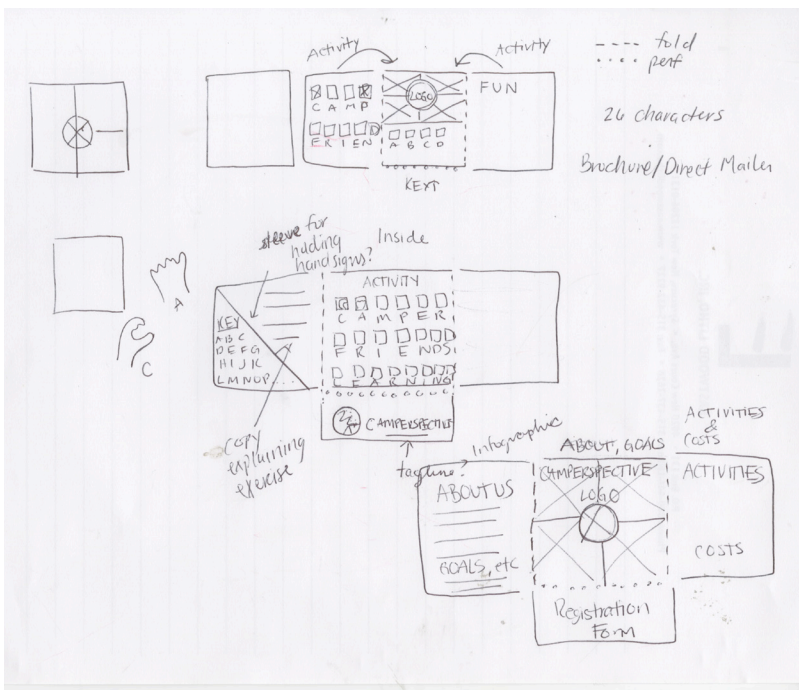 Activity
Activity
---- fold
.... perf
26 characters
Brochure/Direct Mailer
CAMP
FRIEN
LOGO
A B C D
FUN
KEXT
sleeve for
holding
handsigns?
Inside
A
C
KEY
ABC
DEFG
HIJK
LMNOP....
ACTIVITY
CAMPER
FRIENDS
LEARNING
CAMPERSPECTIVE
copy
explaining
exercise
tagline?
Infographic
ABOUT, GOALS
ACTIVITIES
&
COSTS
ABOUT US
GOALS, etc
CAMPERSPECTIVE
LOGO
ACTIVITIES
COSTS
Registration
Form